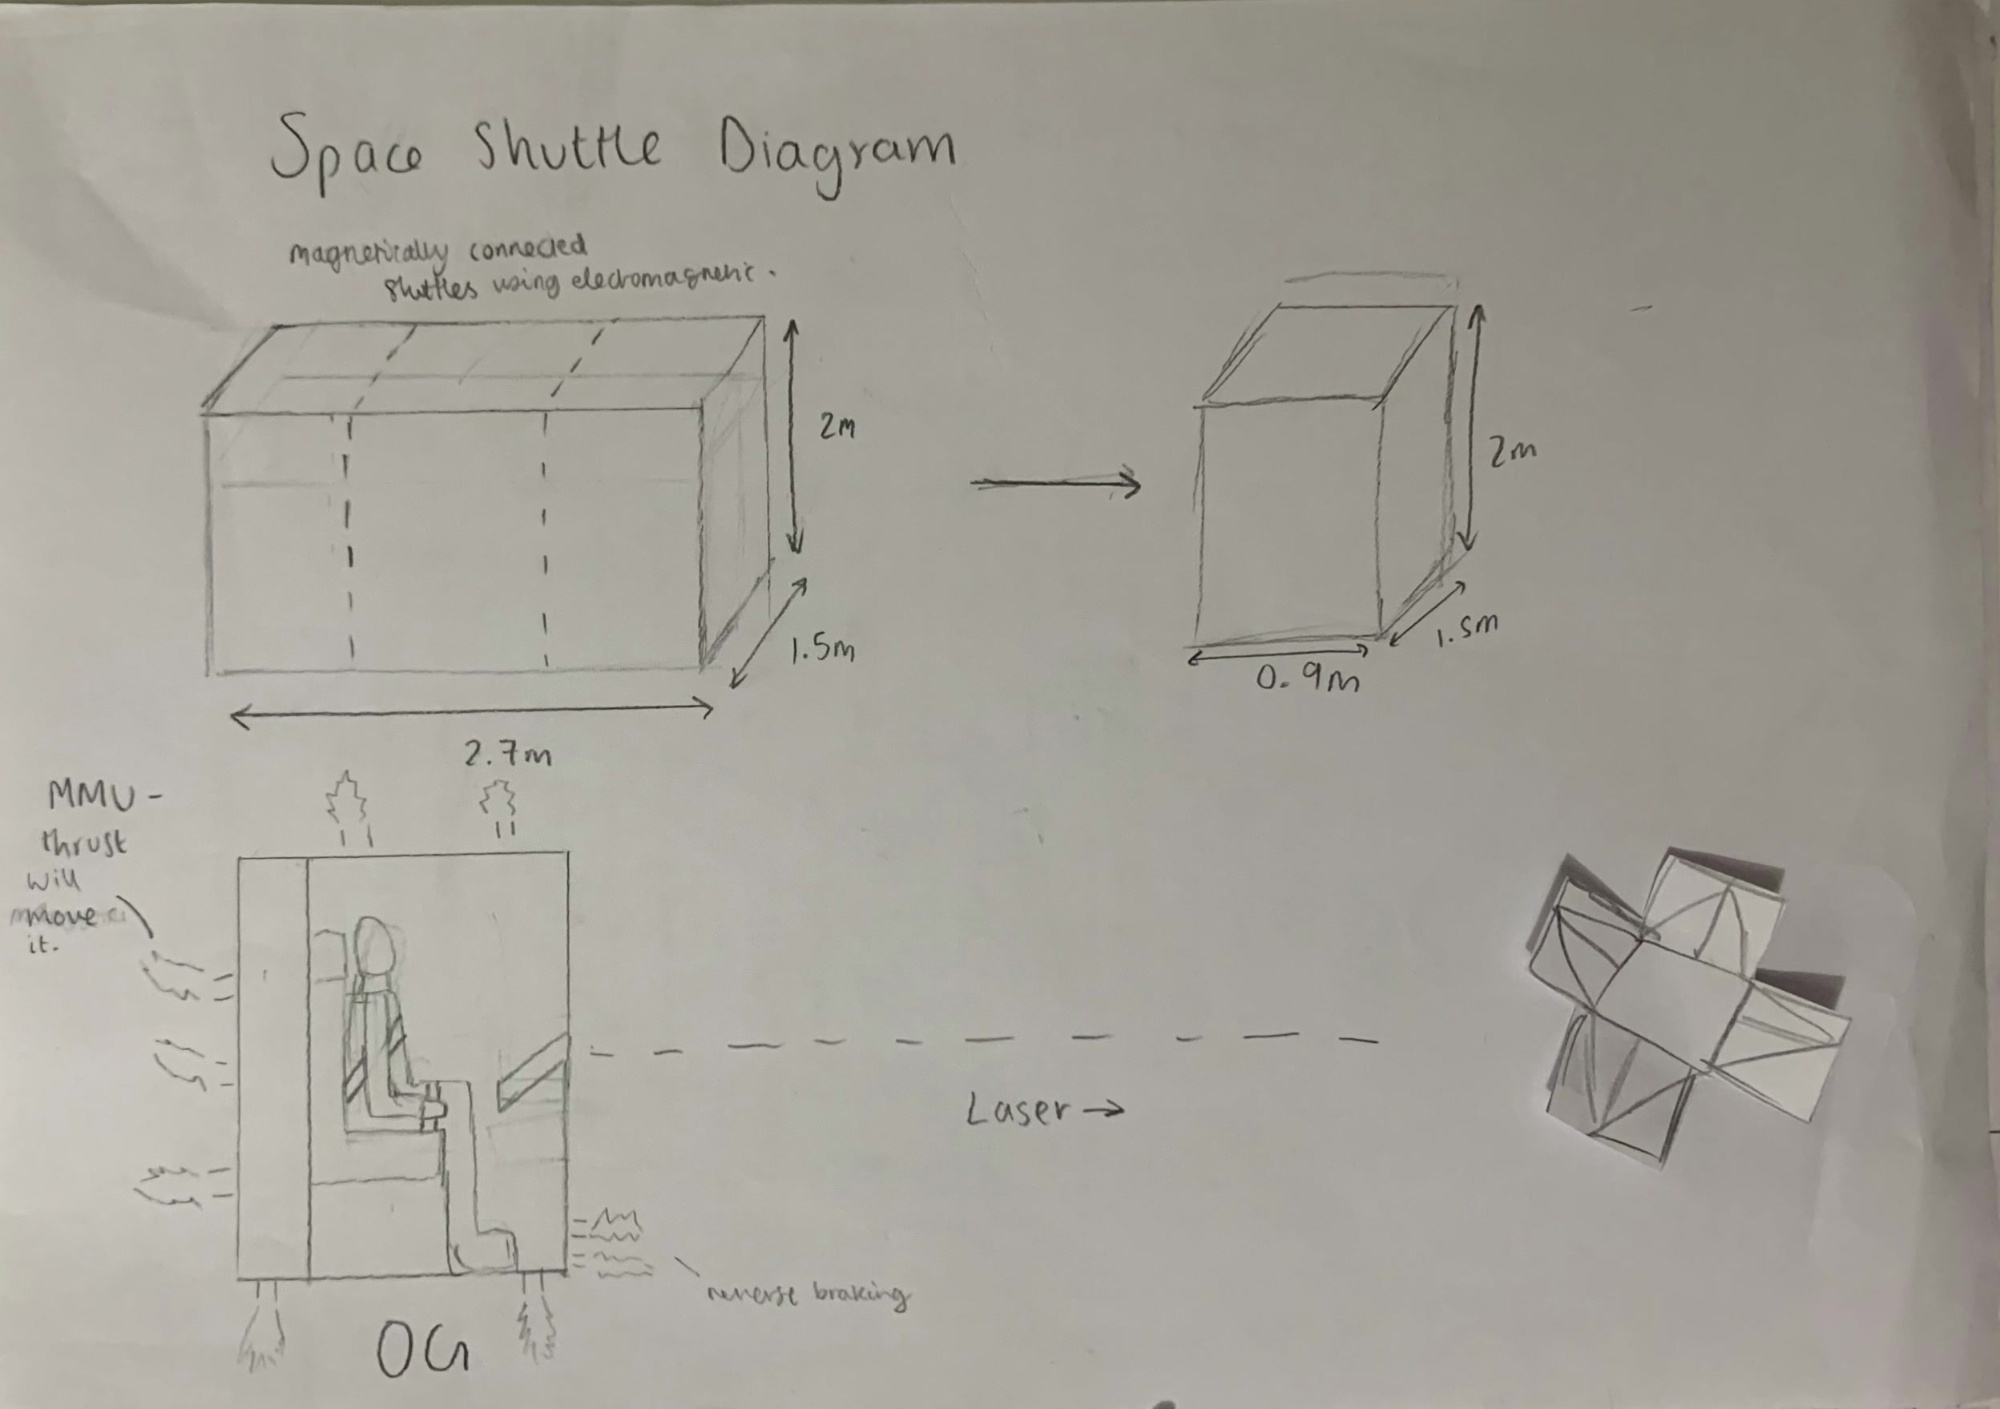 Space Shuttle Diagram
magnetically connected
shuttles using electromagnetic.
2m
1.5m
2.7m
2m
1.5m
0.9m
MMU -
thrust
will
move
it.
Laser →
reverse braking
OG